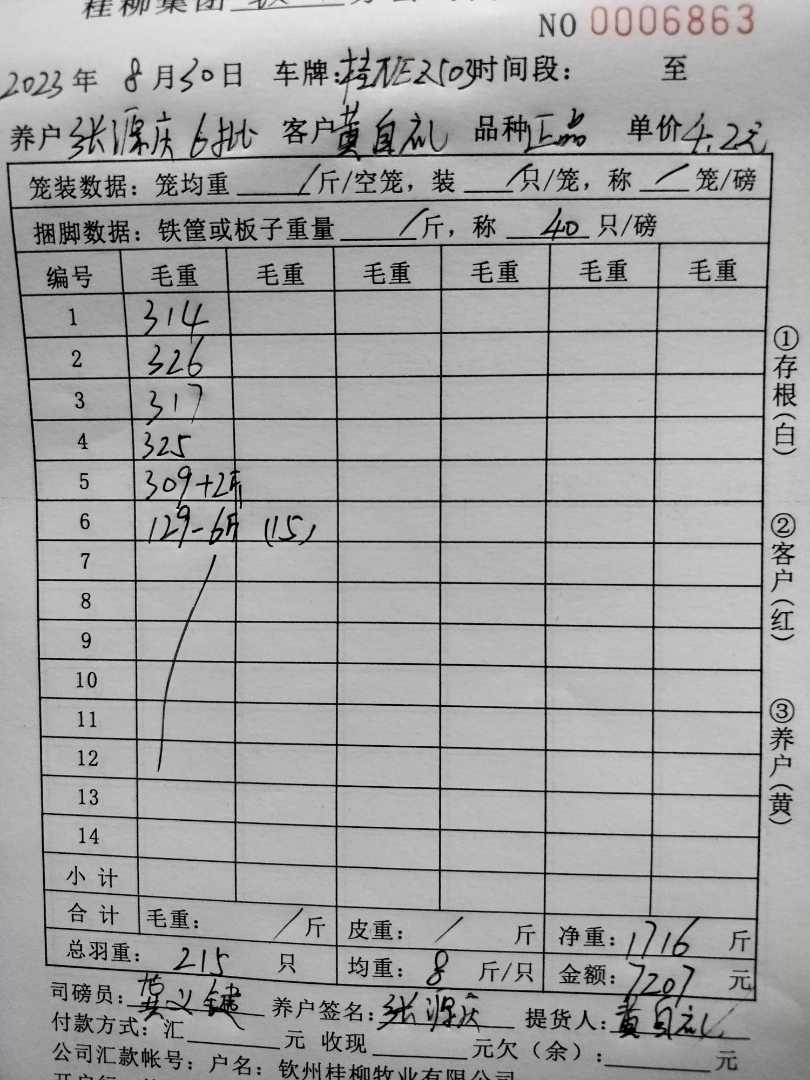 桂柳集团
NO 0006863
2023年 8月30日 车牌:桂NE2503时间段: 至
养户 张源庆 6批 客户 黄自礼 品种 正品 单价 4.2元
笼装数据: 笼均重 / 斤/空笼, 装 / 只/笼, 称 / 笼/磅
捆脚数据: 铁筐或板子重量 / 斤, 称 40 只/磅
编号 毛重 毛重 毛重 毛重 毛重 毛重
1 314
2 326
3 317
4 325
5 309+2斤
6 129-6斤 (15)
7
8
9
10
11
12
13
14
小计
合计 毛重: / 斤 皮重: / 斤 净重: 1716 斤
总羽重: 215 只 均重: 8 斤/只 金额: 7207 元
①存根(白) ②客户(红) ③养户(黄)
司磅员: 黄义键 养户签名: 张源庆 提货人: 黄自礼
付款方式: 汇 元 收现 元欠(余): 元
公司汇款帐号: 户名: 钦州桂柳牧业有限公司